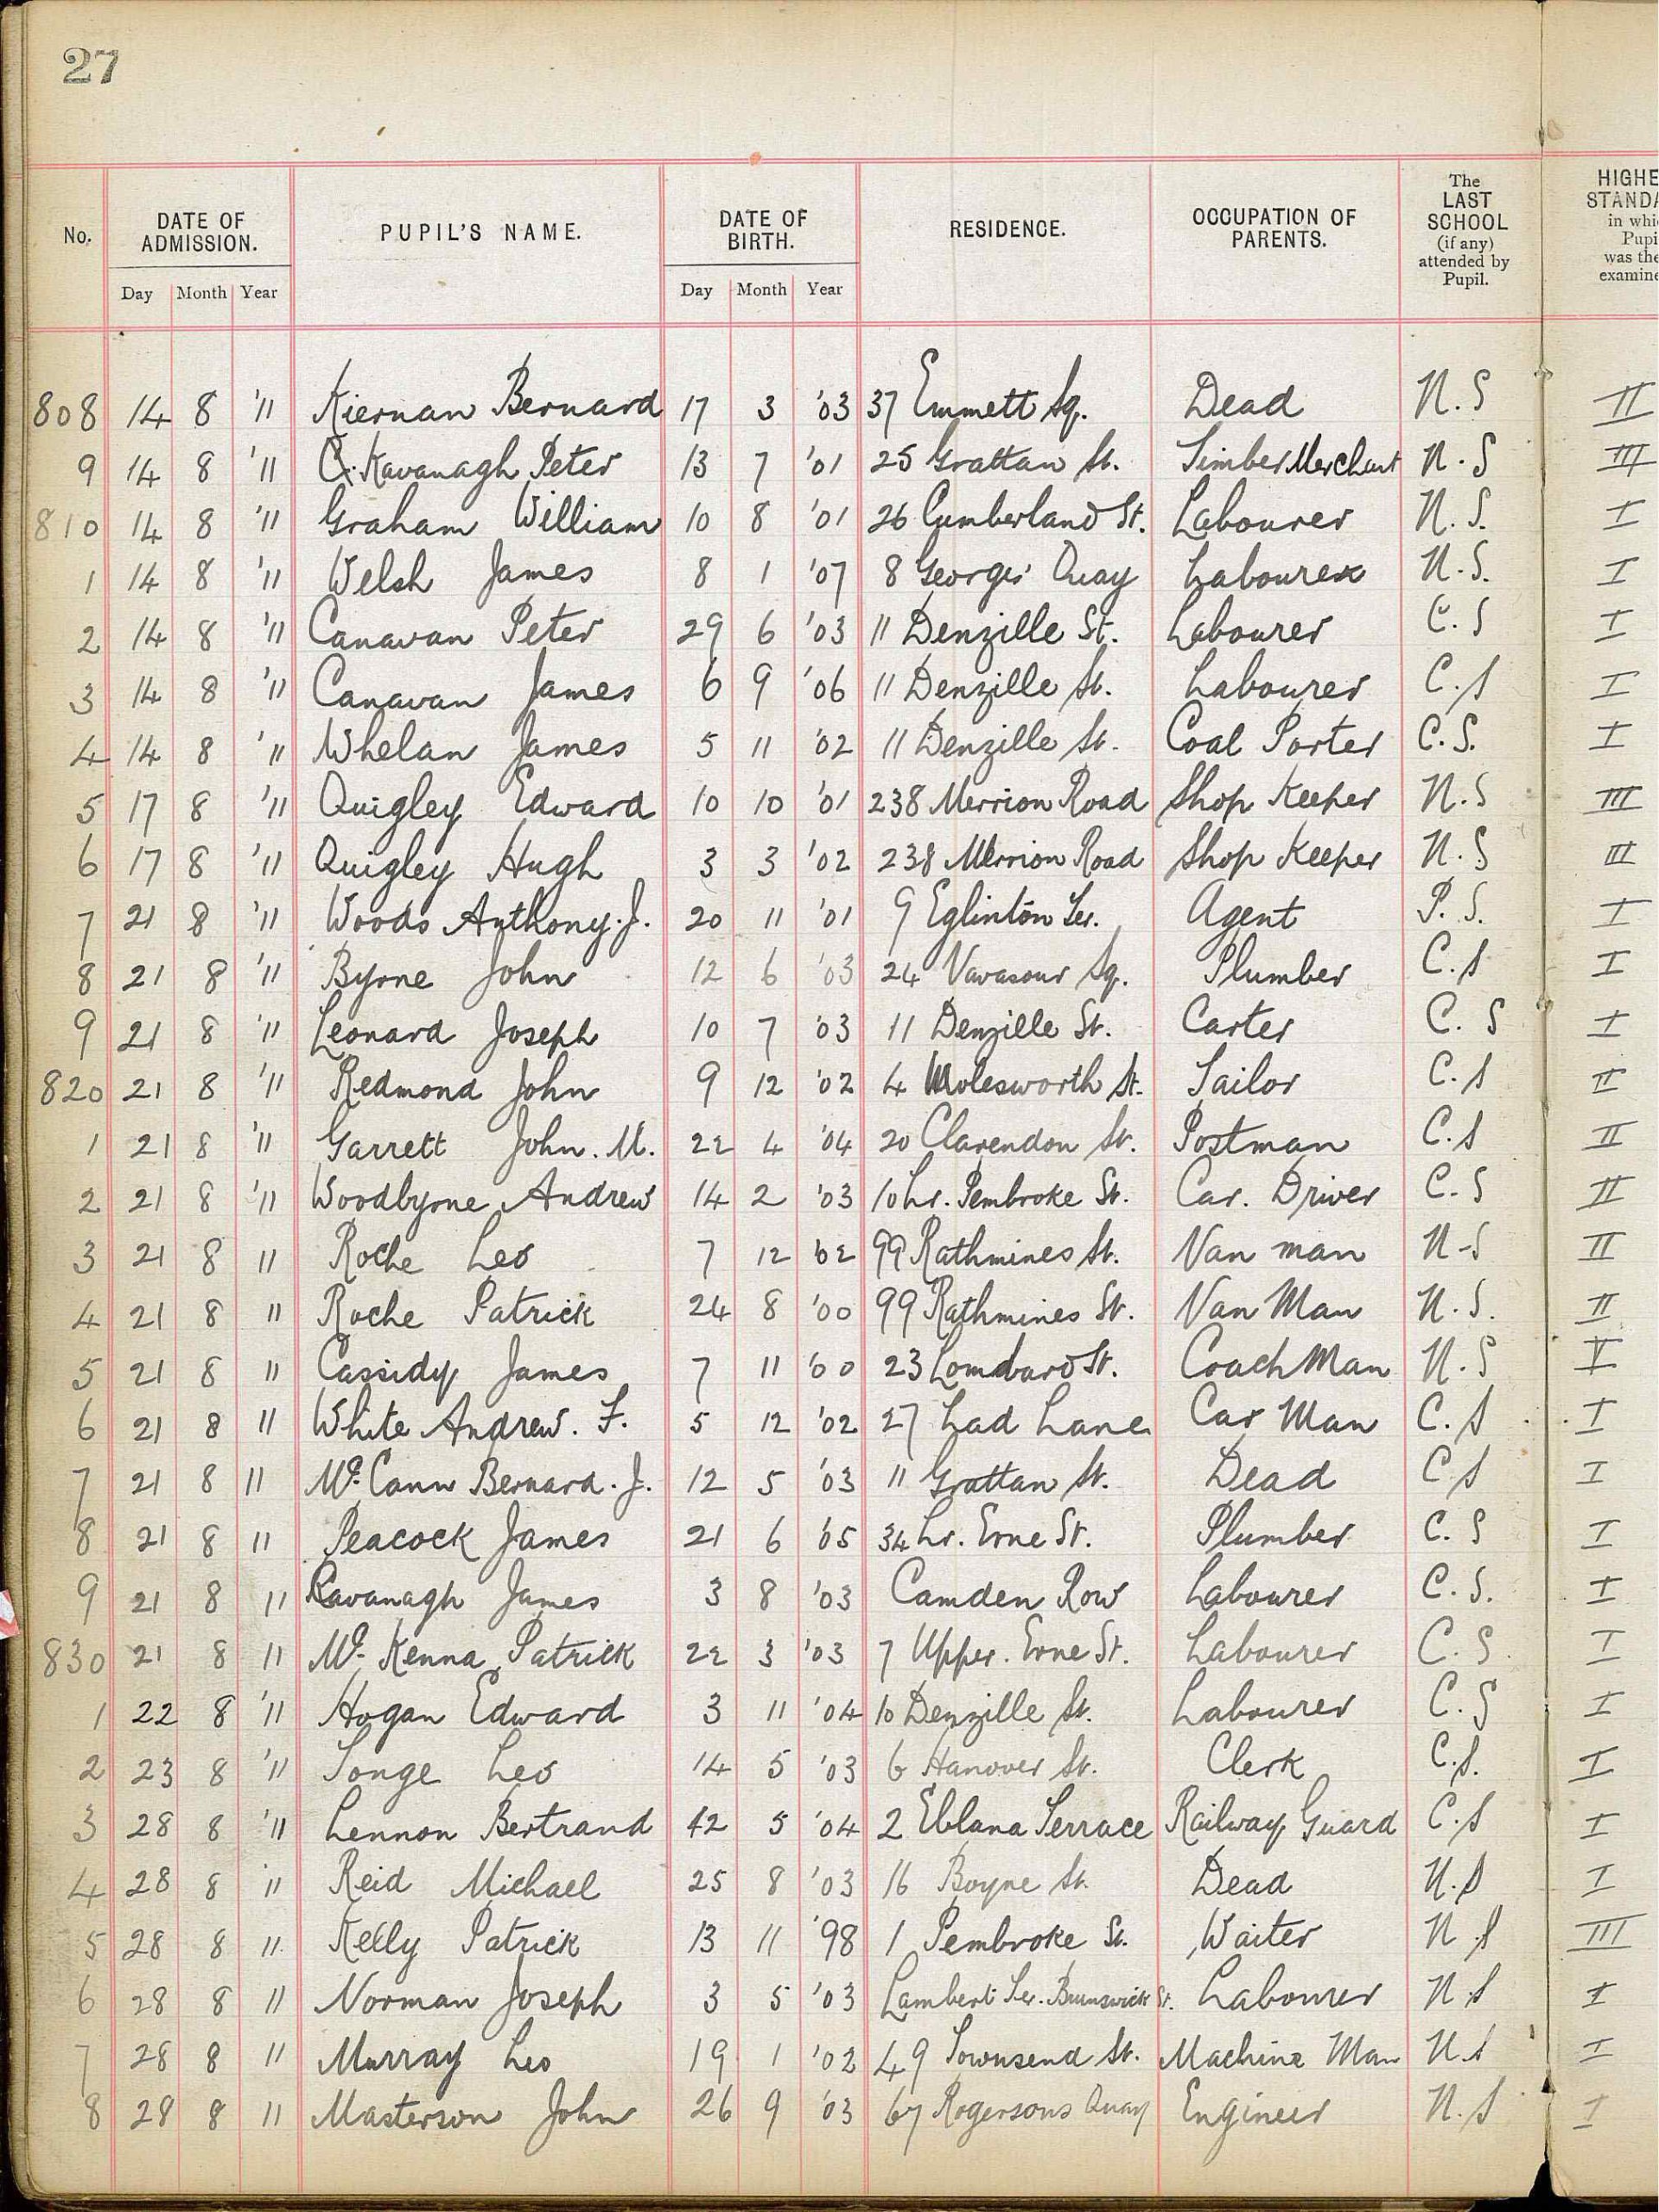 27
No. DATE OF ADMISSION. PUPIL'S NAME. DATE OF BIRTH. RESIDENCE. OCCUPATION OF PARENTS. The LAST SCHOOL (if any) attended by Pupil. HIGHE STANDA in whi Pupi was the examine
Day Month Year Day Month Year
808 14 8 '11 Kiernan Bernard 17 3 '03 37 Emmett Sq. Dead N.S II
9 14 8 '11 Kavanagh Peter 13 7 '01 25 Grattan St. Timber Merchant N.S III
810 14 8 '11 Graham William 10 8 '01 26 Cumberland St. Labourer N.S. I
1 14 8 '11 Welsh James 8 1 '07 8 Georges' Quay Labourer N.S. I
2 14 8 '11 Canavan Peter 29 6 '03 11 Denzille St. Labourer C.S I
3 14 8 '11 Canavan James 6 9 '06 11 Denzille St. Labourer C.S I
4 14 8 '11 Whelan James 5 11 '02 11 Denzille St. Coal Porter C.S. I
5 17 8 '11 Quigley Edward 10 10 '01 238 Merrion Road Shop Keeper N.S III
6 17 8 '11 Quigley Hugh 3 3 '02 238 Merrion Road Shop Keeper N.S III
7 21 8 '11 Woods Anthony.J. 20 11 '01 9 Eglinton Ter. Agent P.S. I
8 21 8 '11 Byrne John 12 6 '03 24 Vavasour Sq. Plumber C.S I
9 21 8 '11 Leonard Joseph 10 7 '03 11 Denzille St. Carter C.S I
820 21 8 '11 Redmond John 9 12 '02 4 Molesworth St. Tailor C.S II
1 21 8 '11 Garrett John.M. 22 4 '04 20 Clarendon St. Postman C.S II
2 21 8 '11 Woodbyrne Andrew 14 2 '03 10 Lr. Pembroke St. Car. Driver C.S II
3 21 8 11 Roche Leo 7 12 '02 99 Rathmines St. Van man N-S II
4 21 8 11 Roche Patrick 24 8 '00 99 Rathmines St. Van Man N.S. II
5 21 8 11 Cassidy James 7 11 '00 23 Lombard St. Coach Man N.S V
6 21 8 11 White Andrew. F. 5 12 '02 27 Lad Lane Car Man C.S I
7 21 8 11 Mc. Cann Bernard.J. 12 5 '03 11 Grattan St. Dead C S I
8 21 8 11 Peacock James 21 6 '05 34 Lr. Erne St. Plumber C.S I
9 21 8 11 Kavanagh James 3 8 '03 Camden Row Labourer C.S. I
830 21 8 11 Mc. Kenna Patrick 22 3 '03 7 Upper. Erne St. Labourer C.S. I
1 22 8 '11 Hogan Edward 3 11 '04 10 Denzille St. Labourer C.S I
2 23 8 '11 Tonge Leo 14 5 '03 6 Hanover St. Clerk C.S. I
3 28 8 '11 Lennon Bertrand 12 5 '04 2 Eblana Terrace Railway Guard C.S I
4 28 8 11 Reid Michael 25 8 '03 16 Boyne St. Dead N.S I
5 28 8 11 Kelly Patrick 13 11 '98 1 Pembroke St. Waiter N.S III
6 28 8 11 Norman Joseph 3 5 '03 Lambert Ter. Brunswick St. Labourer N.S I
7 28 8 11 Murray Leo 19 1 '02 49 Townsend St. Machine Man N.S I
8 28 8 11 Masterson John 26 9 '03 67 Rogersons Quay Engineer N.S I